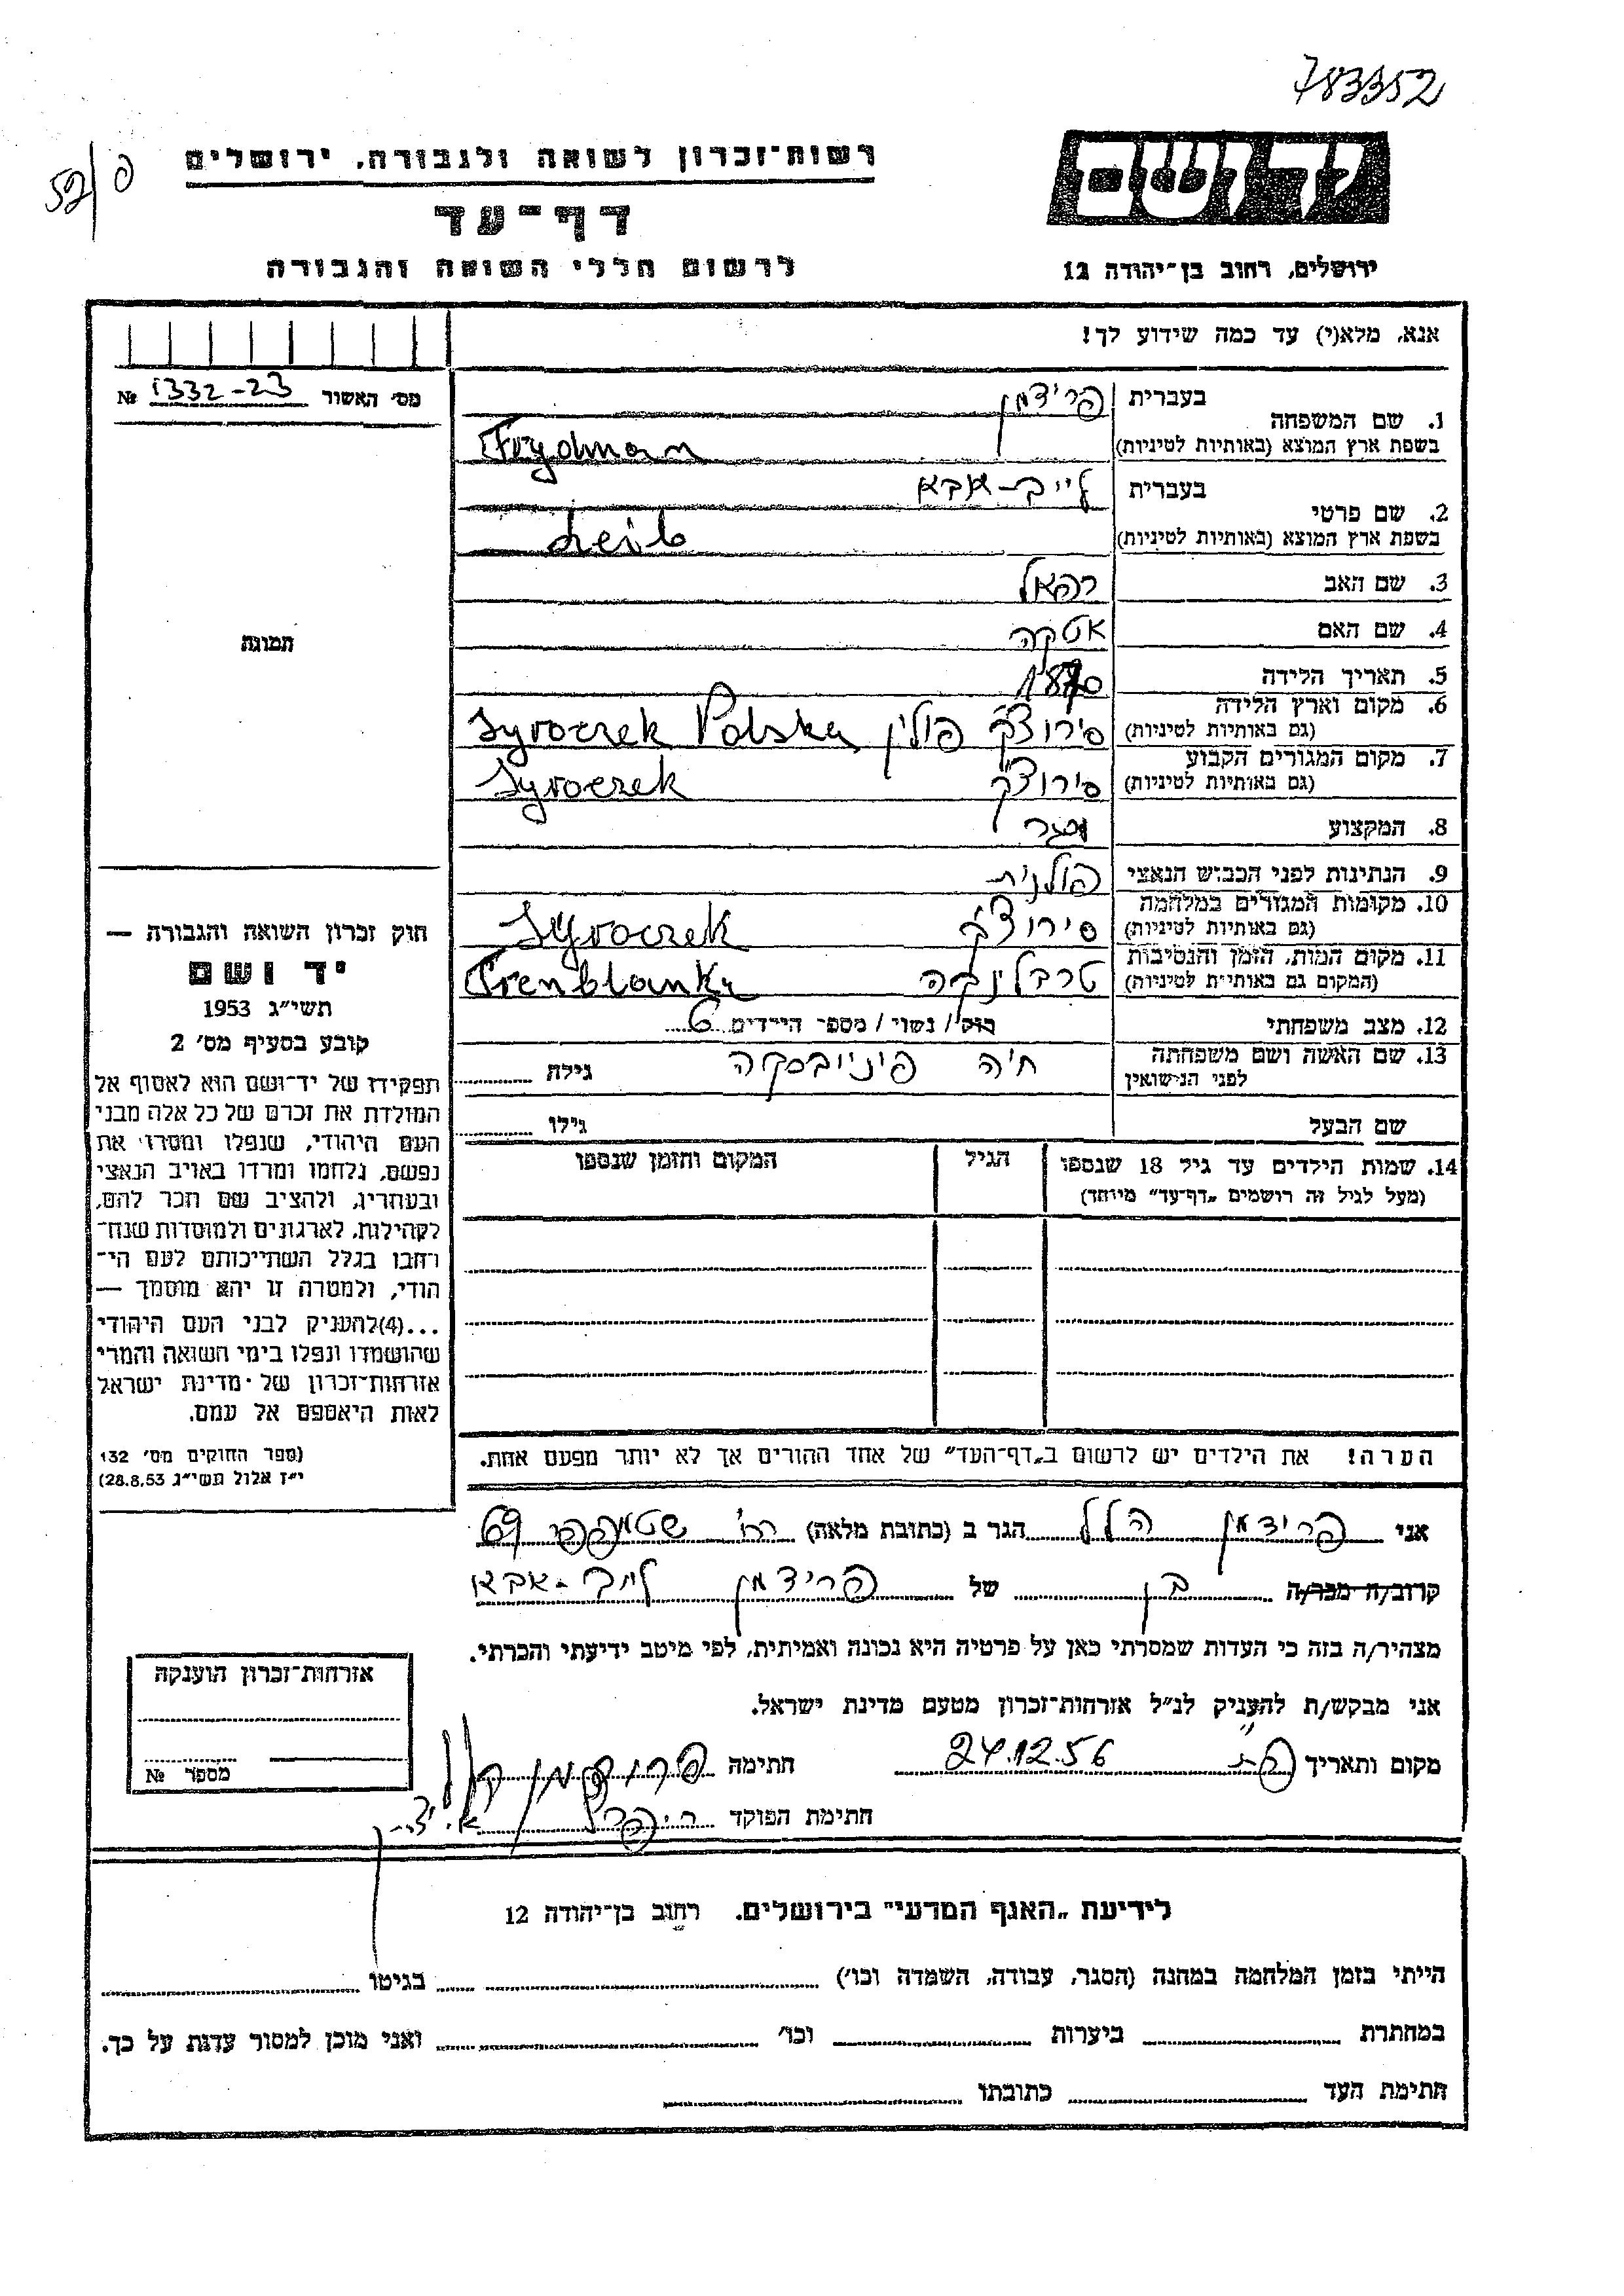 783352
52/פ
ידושם
רשות־זכרון לשואה ולגבורה, ירושלים
דף־עד
לרשום חללי השואה והגבורה
ירושלים, רחוב בן־יהודה 12
אנא, מלא(י) עד כמה שידוע לך!
מס׳ האשור № 1332-23
1. שם המשפחה
בעברית פרידמן
בשפת ארץ המוצא (באותיות לטיניות) Frydman
2. שם פרטי
בעברית לייב-אבא
בשפת ארץ המוצא (באותיות לטיניות) Leib
3. שם האב רפאל
4. שם האם אטקה
5. תאריך הלידה 1870
6. מקום וארץ הלידה
(גם באותיות לטיניות) סירוצק פולין Syroczek Polska
7. מקום המגורים הקבוע
(גם באותיות לטיניות) סירוצק Syroczek
8. המקצוע
9. הנתינות לפני הכבוש הנאצי פולנית
10. מקומות המגורים במלחמה
(גם באותיות לטיניות) סירוצק Syroczek
11. מקום המות, הזמן והנסיבות
(המקום גם באותיות לטיניות) טרבלינקה Trenblanka
12. מצב משפחתי רוק/ נשוי / מספר הילדים 6
13. שם האשה ושם משפחתה
לפני הנישואין חיה פיניובסקה גילה
שם הבעל גילו
14. שמות הילדים עד גיל 18 שנספו
(מעל לגיל זה רושמים „דף־עד״ מיוחד)
הגיל
המקום והזמן שנספו
הערה! את הילדים יש לרשום ב„דף־העד״ של אחד ההורים אך לא יותר מפעם אחת.
תמונה
חוק זכרון השואה והגבורה —
יד ושם
תשי״ג 1953
קובע בסעיף מס׳ 2
תפקידו של יד־ושם הוא לאסוף אל
המולדת את זכרם של כל אלה מבני
העם היהודי, שנפלו ומסרו את
נפשם, נלחמו ומרדו באויב הנאצי
ובעוזריו, ולהציב שם וזכר להם,
לקהילות, לארגונים ולמוסדות שנח־
רבו בגלל השתייכותם לעם הי־
הודי, ולמטרה זו יהא מוסמך —
...(4)להעניק לבני העם היהודי
שהושמדו ונפלו בימי השואה והמרי
אזרחות־זכרון של מדינת ישראל
לאות היאספם אל עמם.
(ספר החוקים מס׳ 132
י״ז אלול תשי״ג 28.8.53)
אני פרידמן הלל הגר ב (כתובת מלאה) רח׳ שטמפפר 69
קרוב/ה מכר/ה בן של פרידמן לייב-אבא
מצהיר/ה בזה כי העדות שמסרתי כאן על פרטיה היא נכונה ואמיתית, לפי מיטב ידיעתי והכרתי.
אני מבקש/ת להעניק לנ״ל אזרחות־זכרון מטעם מדינת ישראל.
מקום ותאריך פ״ת 24.12.56 חתימה
חתימת הפוקד
אזרחות־זכרון הוענקה
מספר №
לידיעת „האגף המדעי״ בירושלים. רחוב בן־יהודה 12
הייתי בזמן המלחמה במחנה (הסגר, עבודה, השמדה וכו׳) בגיטו
במחתרת ביערות וכו׳ ואני מוכן למסור עדות על כך.
חתימת העד כתובתו